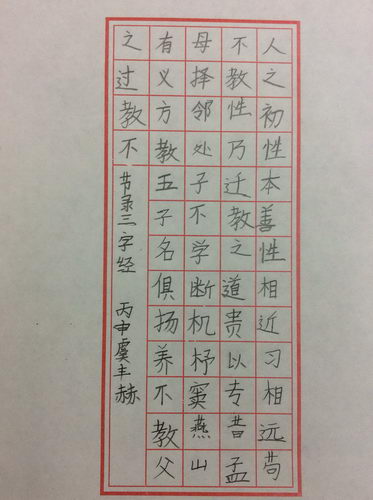 人之初性本善性相近习相远苟
不教性乃迁教之道贵以专昔孟
母择邻处子不学断机杼窦燕山
有义方教五子名俱扬养不教父
之过教不 节录三字经 丙申虞丰赫